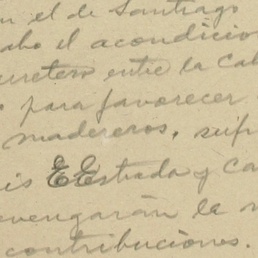 n el de Santiago
abo el acondicio
arretera entre la Cab
para favorecer
madereros, sufr
is EEstrada y ca
evengarán la
contribuciones.